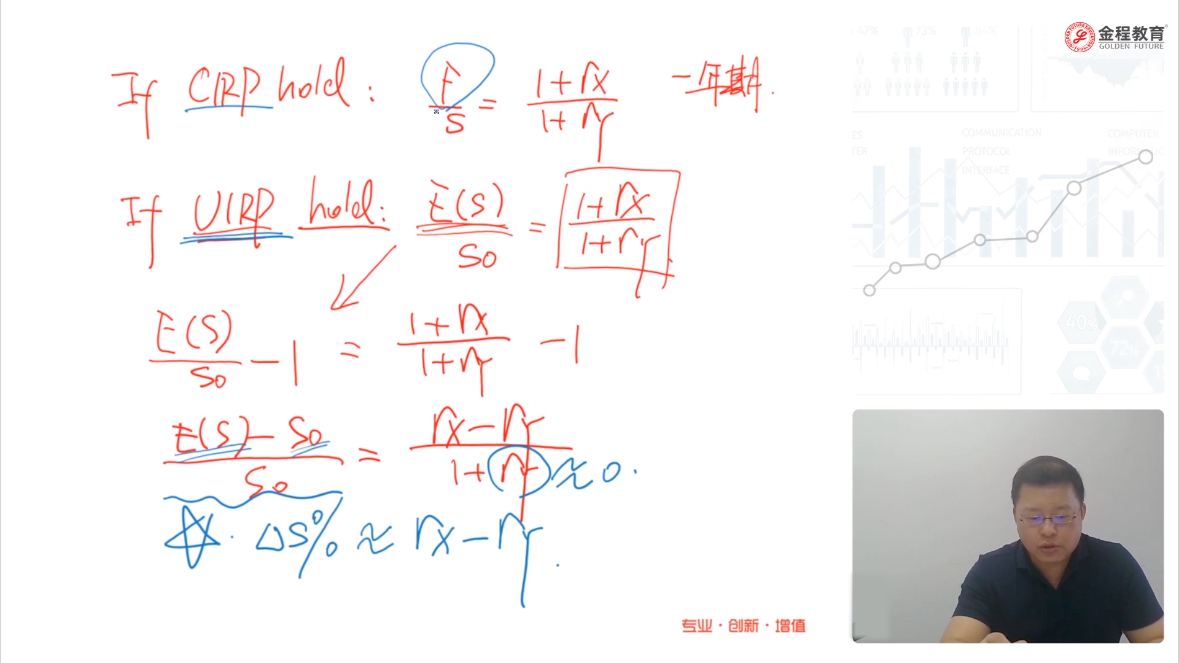 金程教育
GOLDEN FUTURE
If CIRP hold: F/S = (1+rx)/(1+ry) 一年期.
If UIRP hold: E(S)/S0 = (1+rx)/(1+ry)
E(S)/S0 - 1 = (1+rx)/(1+ry) - 1
(E(S) - S0)/S0 = (rx - ry)/(1+ry) ≈ 0.
☆. ΔS% ≈ rx - ry.
专业·创新·增值
COMMUNICATION
PROTOCOL
INTERFACE
COMPUTER
40%
72%